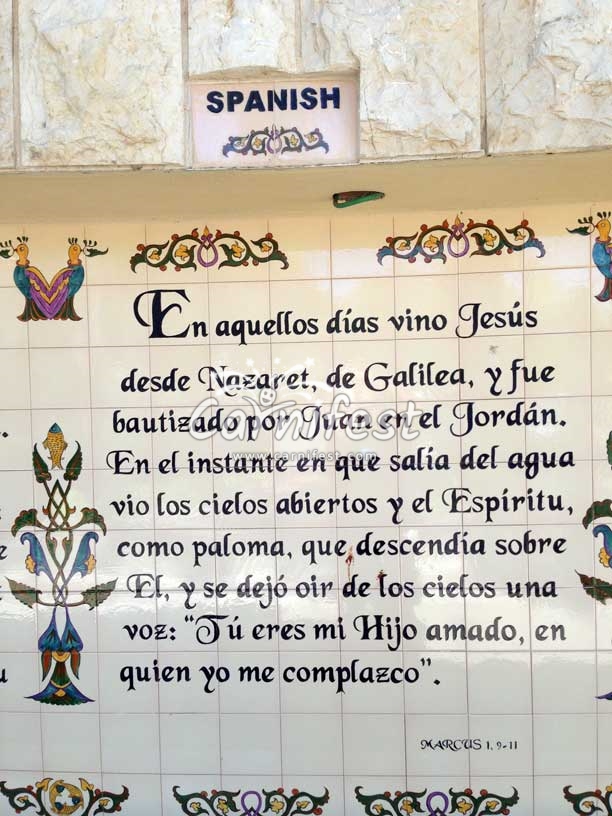 SPANISH
En aquellos días vino Jesús
desde Nazaret, de Galilea, y fue
bautizado por Juan en el Jordán.
Carnifest
www.carnifest.com
En el instante en que salía del agua
vio los cielos abiertos y el Espíritu,
como paloma, que descendía sobre
El, y se dejó oir de los cielos una
voz: "Tú eres mi Hijo amado, en
quien yo me complazco".
MARCUS 1, 9-11